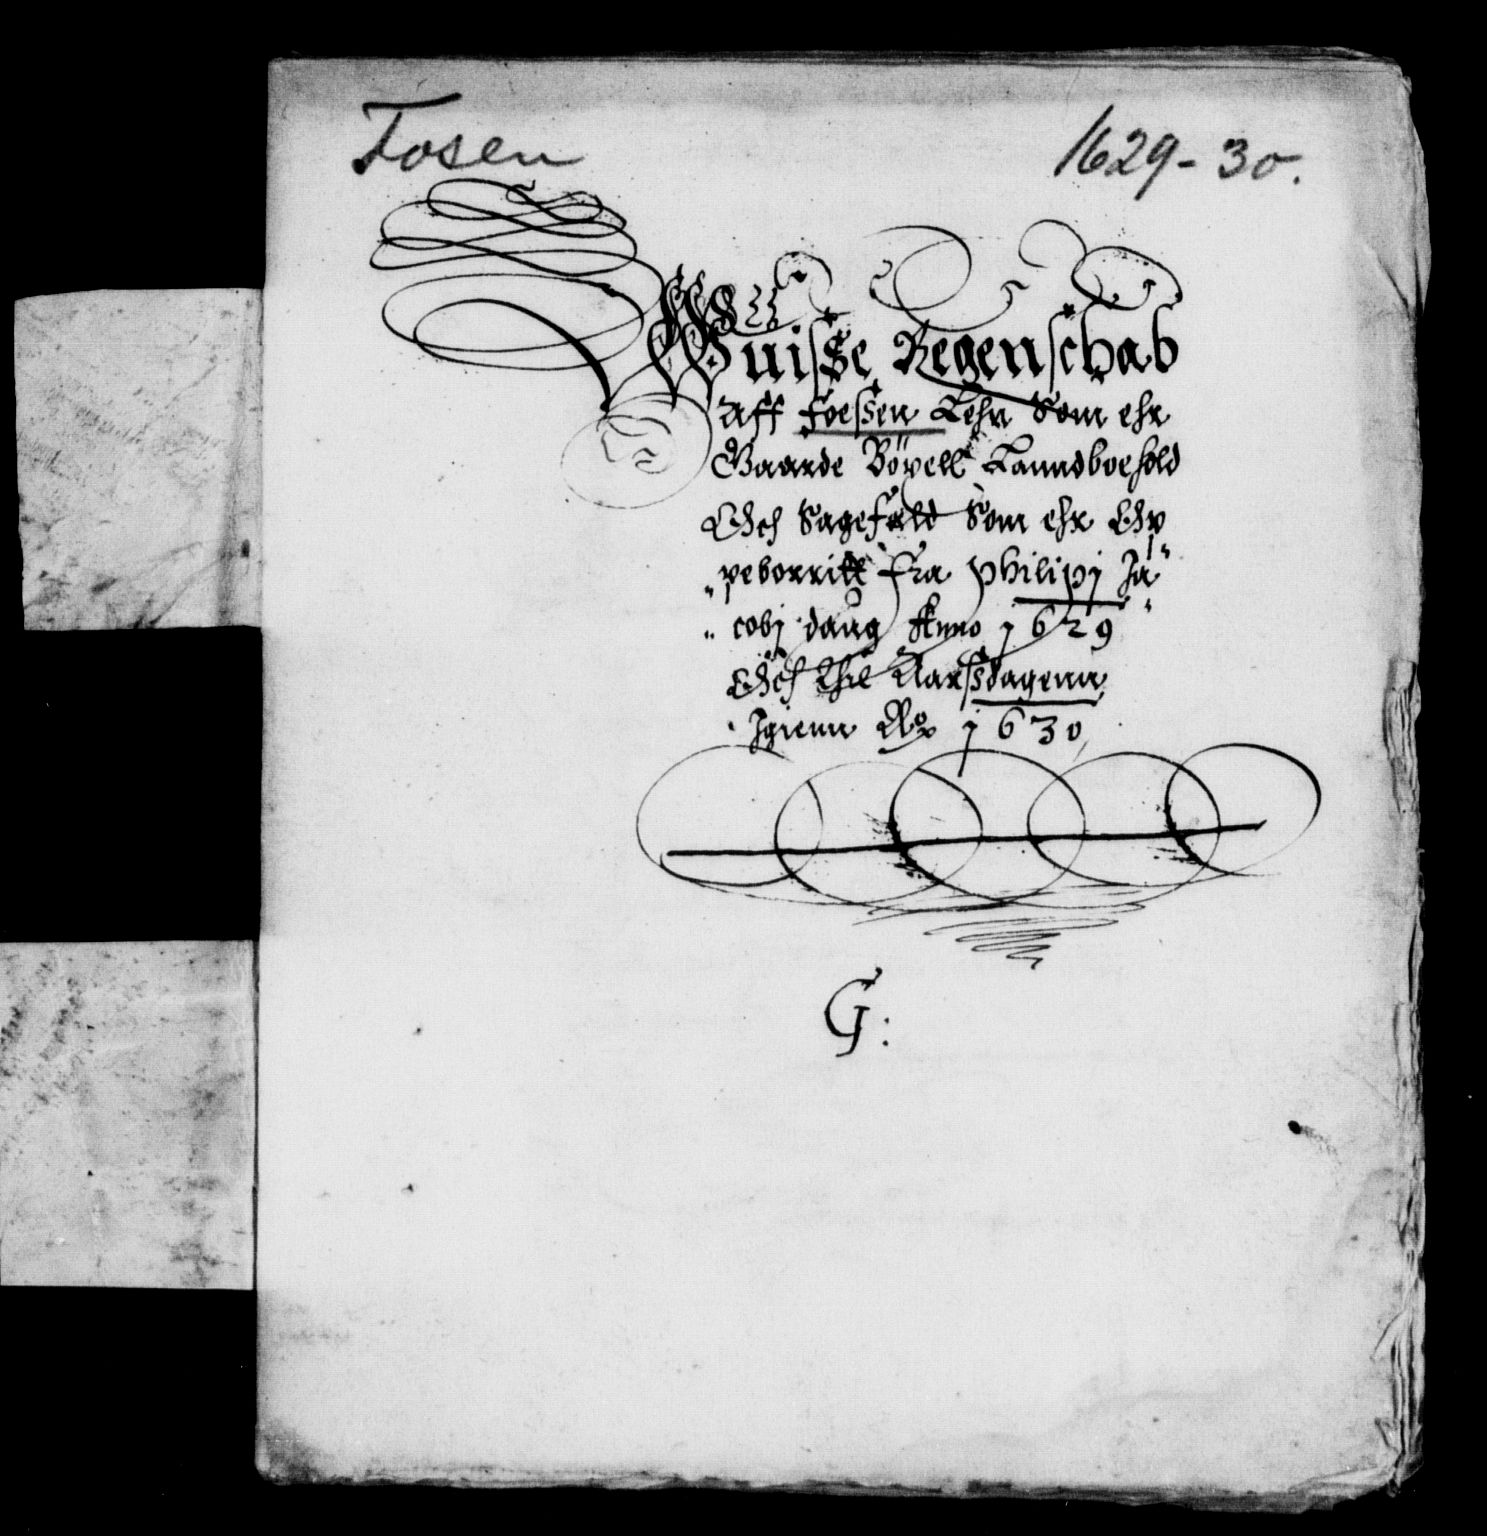 Fosen
1629-30.
Wuisse Regenschab
Aff Foessen Lehn Som ehr
Gaarde Böxell Lanndboehold
Och Sagefald Som ehr Op
peborritt Fra Philipj Ja
cobj daug Anno j629
Och Thil Aarssdagenn
Igienn j630
G: